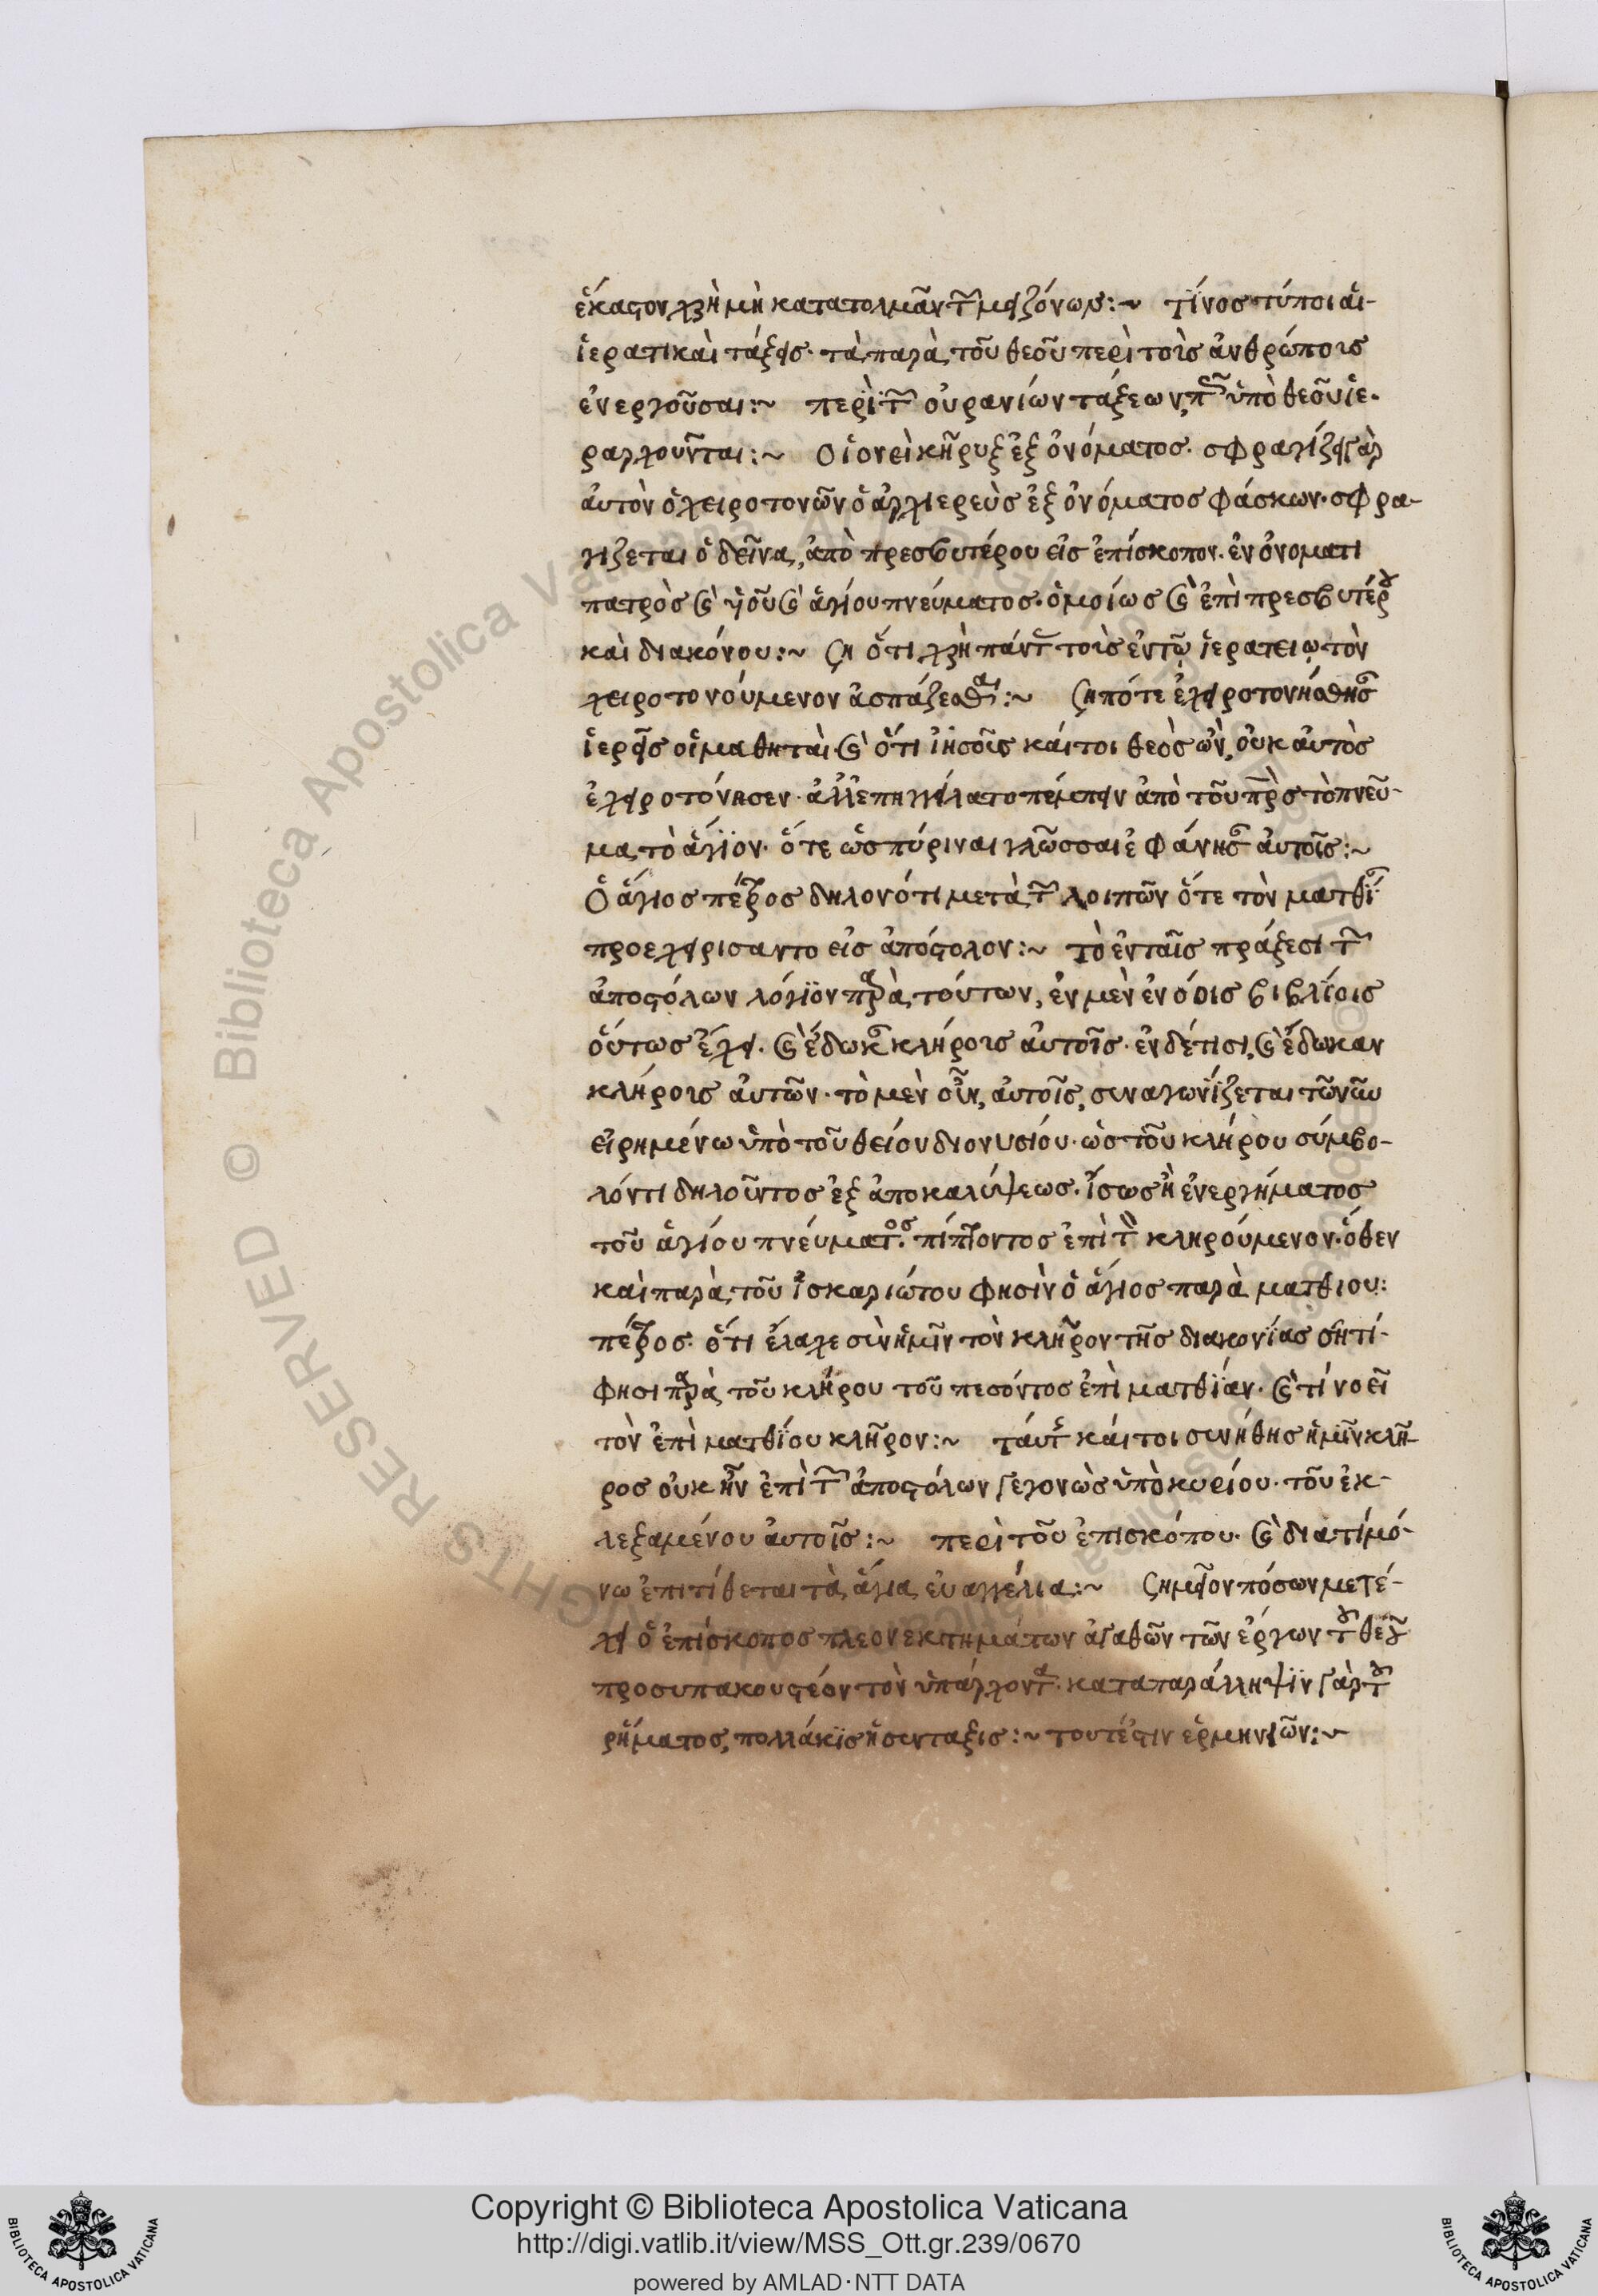 ἕκαστον χρὴ μὴ κατατολμᾶν τῶν μειζόνων:~ τίνος τύποι αἱ-
ἱερατικαὶ τάξεις· τὰ παρὰ τοῦ θεοῦ περὶ τοῖς ἀνθρώποις
ἐνεργοῦσαι:~ περὶ τῶν οὐρανίων τάξεων, πῶς ὑπὸ θεοῦ ἱε-
ραρχοῦνται:~ οἱονεὶ κῆρυξ ἐξ ὀνόματος· σφραγίζει γὰρ
αὐτὸν ὁ χειροτονῶν ὁ ἀρχιερεὺς ἐξ ὀνόματος φάσκων· σφρα-
γίζεται ὁ δεῖνα, ἀπὸ πρεσβυτέρου εἰς ἐπίσκοπον· ἐν ὀνοματι
πατρὸς καὶ υἱοῦ καὶ ἁγίου πνεύματος· ὁμοίως καὶ ἐπὶ πρεσβυτέρου
καὶ διακόνου:~ ση ὅτι χρὴ πάντας τοῖς ἐν τῷ ἱερατείῳ τὸν
χειροτονούμενον ἀσπάζεσθαι:~ ση πότε ἐχειροτονήθησαν
ἱερεῖς οἱ μαθηταὶ· καὶ ὅτι ἰησοῦς καίτοι θεὸς ὢν, οὐκ αὐτὸς
ἐχειροτόνησεν· ἀλλ' ἐπηγγείλατο πέμπειν ἀπὸ τοῦ πρὸς τὸ πνεῦ-
μα τὸ ἅγϊον· ὅτε ὡς πύριναι γλῶσσαι ἐφάνησαν αὐτοῖς:~
Ὁ ἅγιος πέτρος δηλονότι μετὰ τῶν λοιπῶν ὅτε τὸν ματθίαν
προεχειρισαντο εἰς ἀπόστολον:~ τὸ ἐν ταῖς πράξεσι τῶν
ἀποστόλων λόγϊον παρὰ τούτων, ἐν μὲν ἐνίοις βιβλίοις
οὕτως ἔχει· καὶ ἔδωκαν κλήροις αὐτοῖς· ἐν δέ τισι, καὶ ἔδωκαν
κλήροις αὐτῶν· τὸ μὲν οὖν, αὐτοῖς, συναγωνΐζεται τῶ νῦν
εἰρημένω ὑπὸ τοῦ θείου διονυσίου· ὡς τοῦ κλήρου σύμβο-
λόν τι δηλοῦντος ἐξ ἀποκαλύψεως· ἴσως ἢ ἐνεργήματος
τοῦ ἁγίου πνεύματος· πίπτοντος ἐπὶ τὸν κληρούμενον· ὅθεν
καὶ παρὰ τοῦ ἰσκαριώτου φησὶν ὁ ἅγιος παρὰ ματθιου:
πέτρος· ὅτι ἔλαχε σὺν ἡμῖν τὸν κλῆρον τῆς διακονΐας ση τί-
φησι παρὰ τοῦ κλήρου τοῦ πεσόντος ἐπὶ ματθΐαν· καὶ τί νοεῖ
τὸν ἐπὶ ματθΐου κλῆρον:~ καίτοι συνήθης ἡμῖν κλῆ-
ρος οὐκ ἦν ἐπὶ τῶν ἀποστόλων γεγονὼς ὑπὸ κυρίου· τοῦ ἐκ-
λεξαμένου αὐτοῖς:~ περὶ τοῦ ἐπισκόπου· καὶ διατί μό-
νω ἐπιτίθεται τὰ ἅγια εὐαγγέλια:~ πόσων μετέ-
χει ὁ ἐπίσκοπος πλεονεκτημάτων ἀγαθῶν τῶν ἔργων τοῦ θεοῦ
προσυπακουστέον τὸν ὑπάρχοντα· κατα παράλληψϊν γὰρ τοῦ
ῥήματος, πολλάκϊς ἡ συνταξις:~ τουτέστιν ἑρμηνειῶν:~
Copyright © Biblioteca Apostolica Vaticana
http://digi.vatlib.it/view/MSS_Ott.gr.239/0670
powered by AMLAD·NTT DATA
BIBLIOTECA APOSTOLICA VATICANA
BIBLIOTECA APOSTOLICA VATICANA